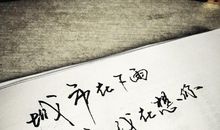 城市在下雨
我在想你